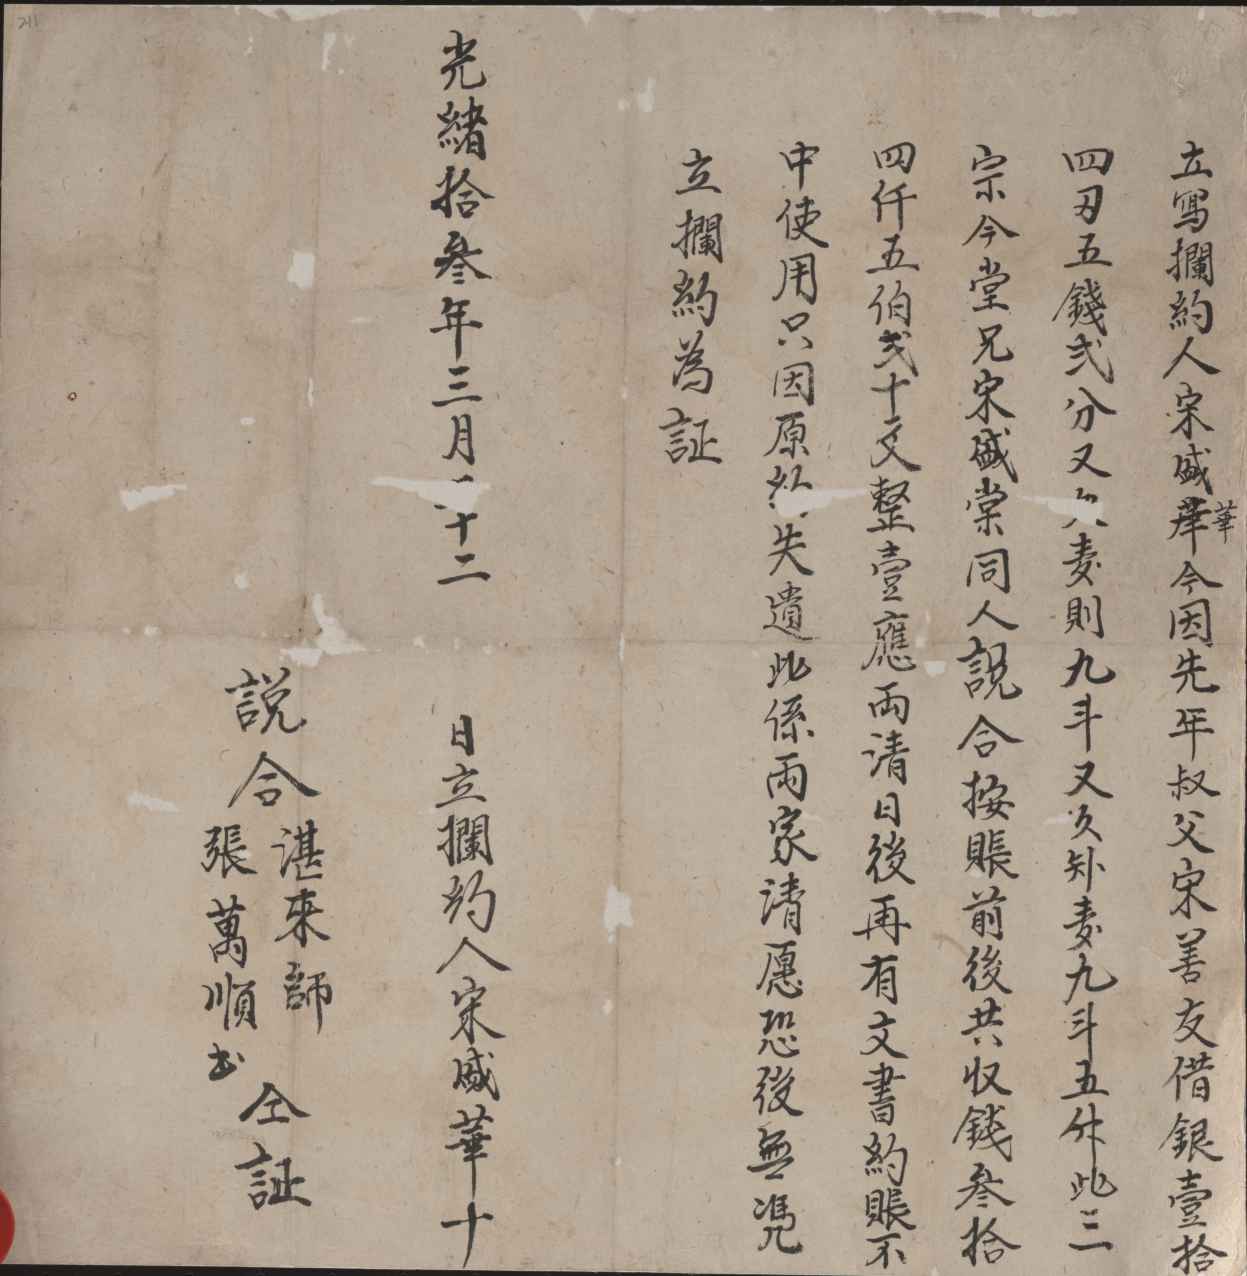 立寫攔約人宋盛華今因先年叔父宋善友借銀壹拾
華
四刄五錢弍分又欠麦則九斗又欠卦麦九斗五升此三
宗今堂兄宋盛棠同人說合按賬前後共収錢叁拾
四仟五伯弍十文整壹應兩清日後再有文書約賬不
中使用只因原約失遺此係兩家清愿恐後無凴
立攔約為証
光緒拾叁年三月二十二 日立攔約人宋盛華十
説合
湛来師
張萬順书
仝証